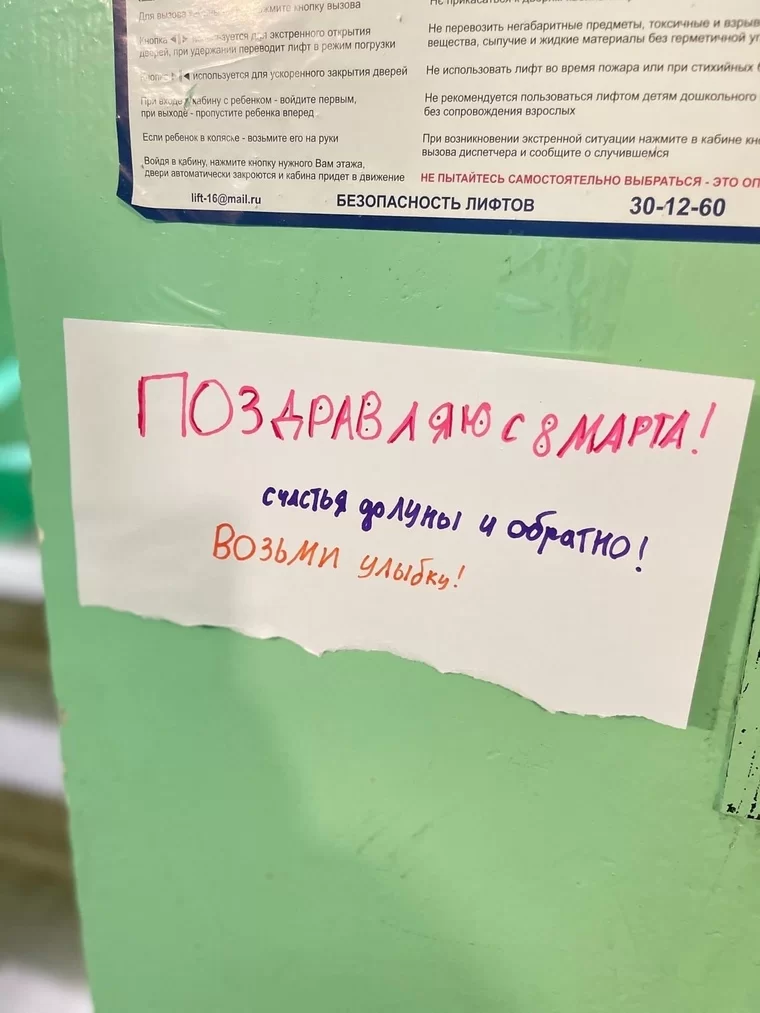 Для вызова кнопку вызова
Кнопка ◄|► используется для экстренного открытия
дверей, при удержании переводит лифт в режим погрузки
Кнопка ►|◄ используется для ускоренного закрытия дверей
При входе в кабину с ребенком - войдите первым,
при выходе - пропустите ребенка вперед
Если ребенок в коляске - возьмите его на руки
Войдя в кабину, нажмите кнопку нужного Вам этажа,
двери автоматически закроются и кабина придет в движение
Не перевозить негабаритные предметы, токсичные и взрыв
вещества, сыпучие и жидкие материалы без герметичной уп
Не использовать лифт во время пожара или при стихийных б
Не рекомендуется пользоваться лифтом детям дошкольного
без сопровождения взрослых
При возникновении экстренной ситуации нажмите в кабине кно
вызова диспетчера и сообщите о случившемся
НЕ ПЫТАЙТЕСЬ САМОСТОЯТЕЛЬНО ВЫБРАТЬСЯ - ЭТО ОП
lift-16@mail.ru БЕЗОПАСНОСТЬ ЛИФТОВ 30-12-60
ПОЗДРАВЛЯЮ С 8 МАРТА!
счастья до Луны и обратно!
Возьми улыбку!